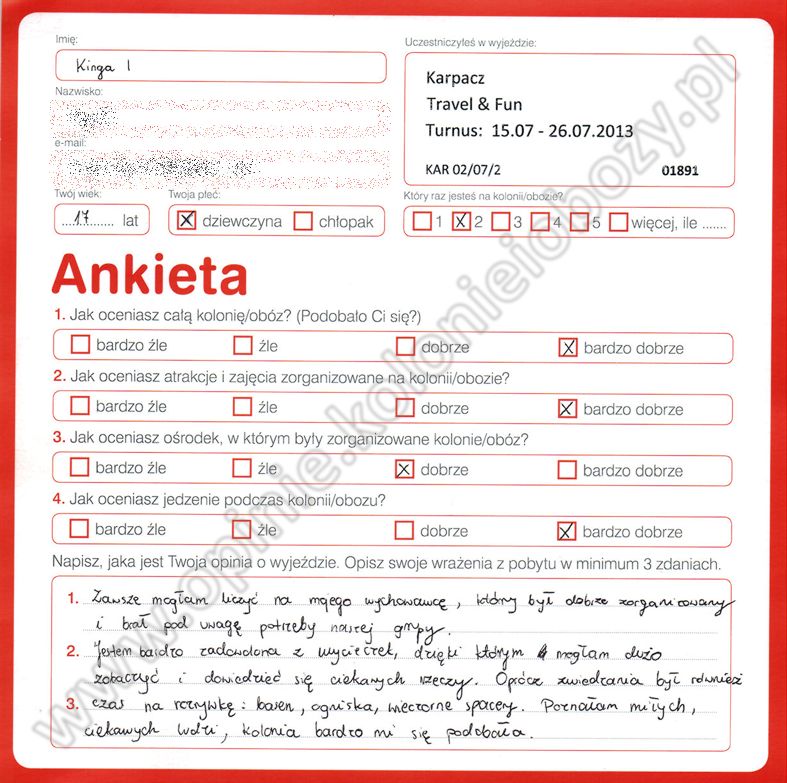 Imię:
Kinga I
Uczestniczyłeś w wyjeździe:
Karpacz
Travel & Fun
Turnus: 15.07 - 26.07.2013
KAR 02/07/2 01891
Nazwisko:
e-mail:
Twój wiek:
17 lat
Twoja płeć:
dziewczyna chłopak
Który raz jesteś na kolonii/obozie?
1 2 3 4 5 więcej, ile .......
Ankieta
1. Jak oceniasz całą kolonię/obóz? (Podobało Ci się?)
bardzo źle źle dobrze bardzo dobrze
2. Jak oceniasz atrakcje i zajęcia zorganizowane na kolonii/obozie?
bardzo źle źle dobrze bardzo dobrze
3. Jak oceniasz ośrodek, w którym były zorganizowane kolonie/obóz?
bardzo źle źle dobrze bardzo dobrze
4. Jak oceniasz jedzenie podczas kolonii/obozu?
bardzo źle źle dobrze bardzo dobrze
Napisz, jaka jest Twoja opinia o wyjeździe. Opisz swoje wrażenia z pobytu w minimum 3 zdaniach.
1. Zawsze mogłam liczyć na mojego wychowawcę, który był dobrze zorganizowany
i brał pod uwagę potrzeby naszej grupy.
2. Jestem bardzo zadowolona z wycieczek, dzięki którym mogłam dużo
zobaczyć i dowiedzieć się ciekawych rzeczy. Oprócz zwiedzania był również
3. czas na rozrywkę: basen, ogniska, wieczorne spacery. Poznałam miłych,
ciekawych ludzi, kolonia bardzo mi się podobała.
www.opinie.kolonieiobozy.pl